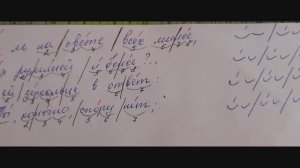 ль на свете всех милее,
румяней и белее?..
ей зеркальце в ответ:
Ты, конечно, спору нет;